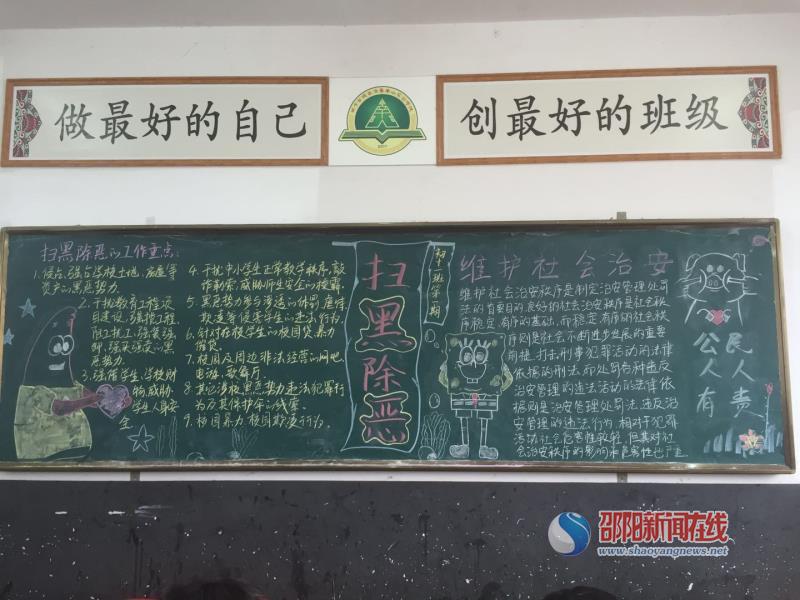 做最好的自己
创最好的班级
扫黑除恶的工作重点:
1.侵占、强占学校土地、房屋等
资产的黑恶势力.
2.干扰教育工程项
目建设,强揽工程,
黑恶势力.
3.强
学生人身安
全
4.干扰中小学生正常教学秩序,敲
诈勒索,威胁师生安全的校霸.
5.黑恶势力参与渗透的体罚、虐待、
欺凌等侵害学生的违法行为.
6.针对在校学生的校园贷、暴力
催贷.
7.校园及周边非法经营的网吧、
电游、歌舞厅.
8.其它涉校黑恶势力违法犯罪行
为及其保护伞的线索.
9.校园暴力校园欺凌行为.
扫黑除恶
第一期
维护社会治安
维护社会治安秩序是制定治安管理处罚
法的首要目的,良好的社会治安秩序是社会秩
序稳定、有序的基础,而稳定、有序的社会秩
序则是社会不断进步发展的重要
前提.打击刑事犯罪活动的法律
依据的刑法,而处罚各种违反
治安管理的违法活动的法律依
据则是治安管理处罚法.违反治
安管理的违法行为,相对于犯罪
活动社会危害性较轻,但其对社
会治安秩序的影响和危害性也严重
公民
人人
有责
邵阳新闻在线
www.shaoyangnews.net